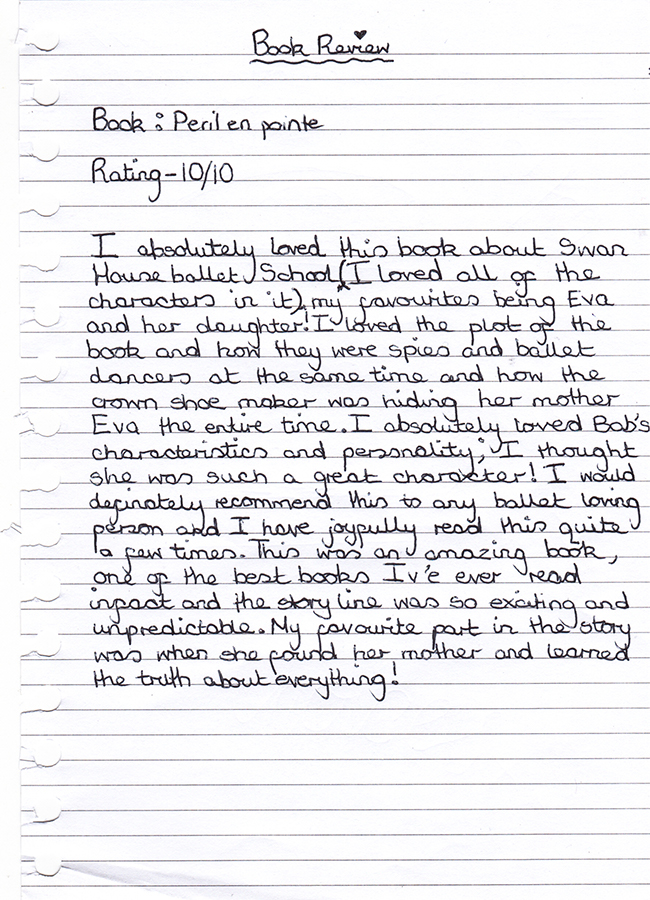 Book Review
Book : Peril en pointe
Rating - 10/10
I absolutely loved this book about Swan
House ballet School (I loved all of the
characters in it), my favourites being Eva
and her daughter! I loved the plot of the
book and how they were spies and ballet
dancers at the same time and how the
crown shoe maker was hiding her mother
Eva the entire time. I absolutely loved Bab's
characteristics and personality; I thought
she was such a great character! I would
definately recommend this to any ballet loving
person and I have joyfully read this quite
a few times. This was an amazing book,
one of the best books Iv'e ever read
infact and the story line was so exciting and
unpredictable. My favourite part in the story
was when she found her mother and learned
the truth about everything!